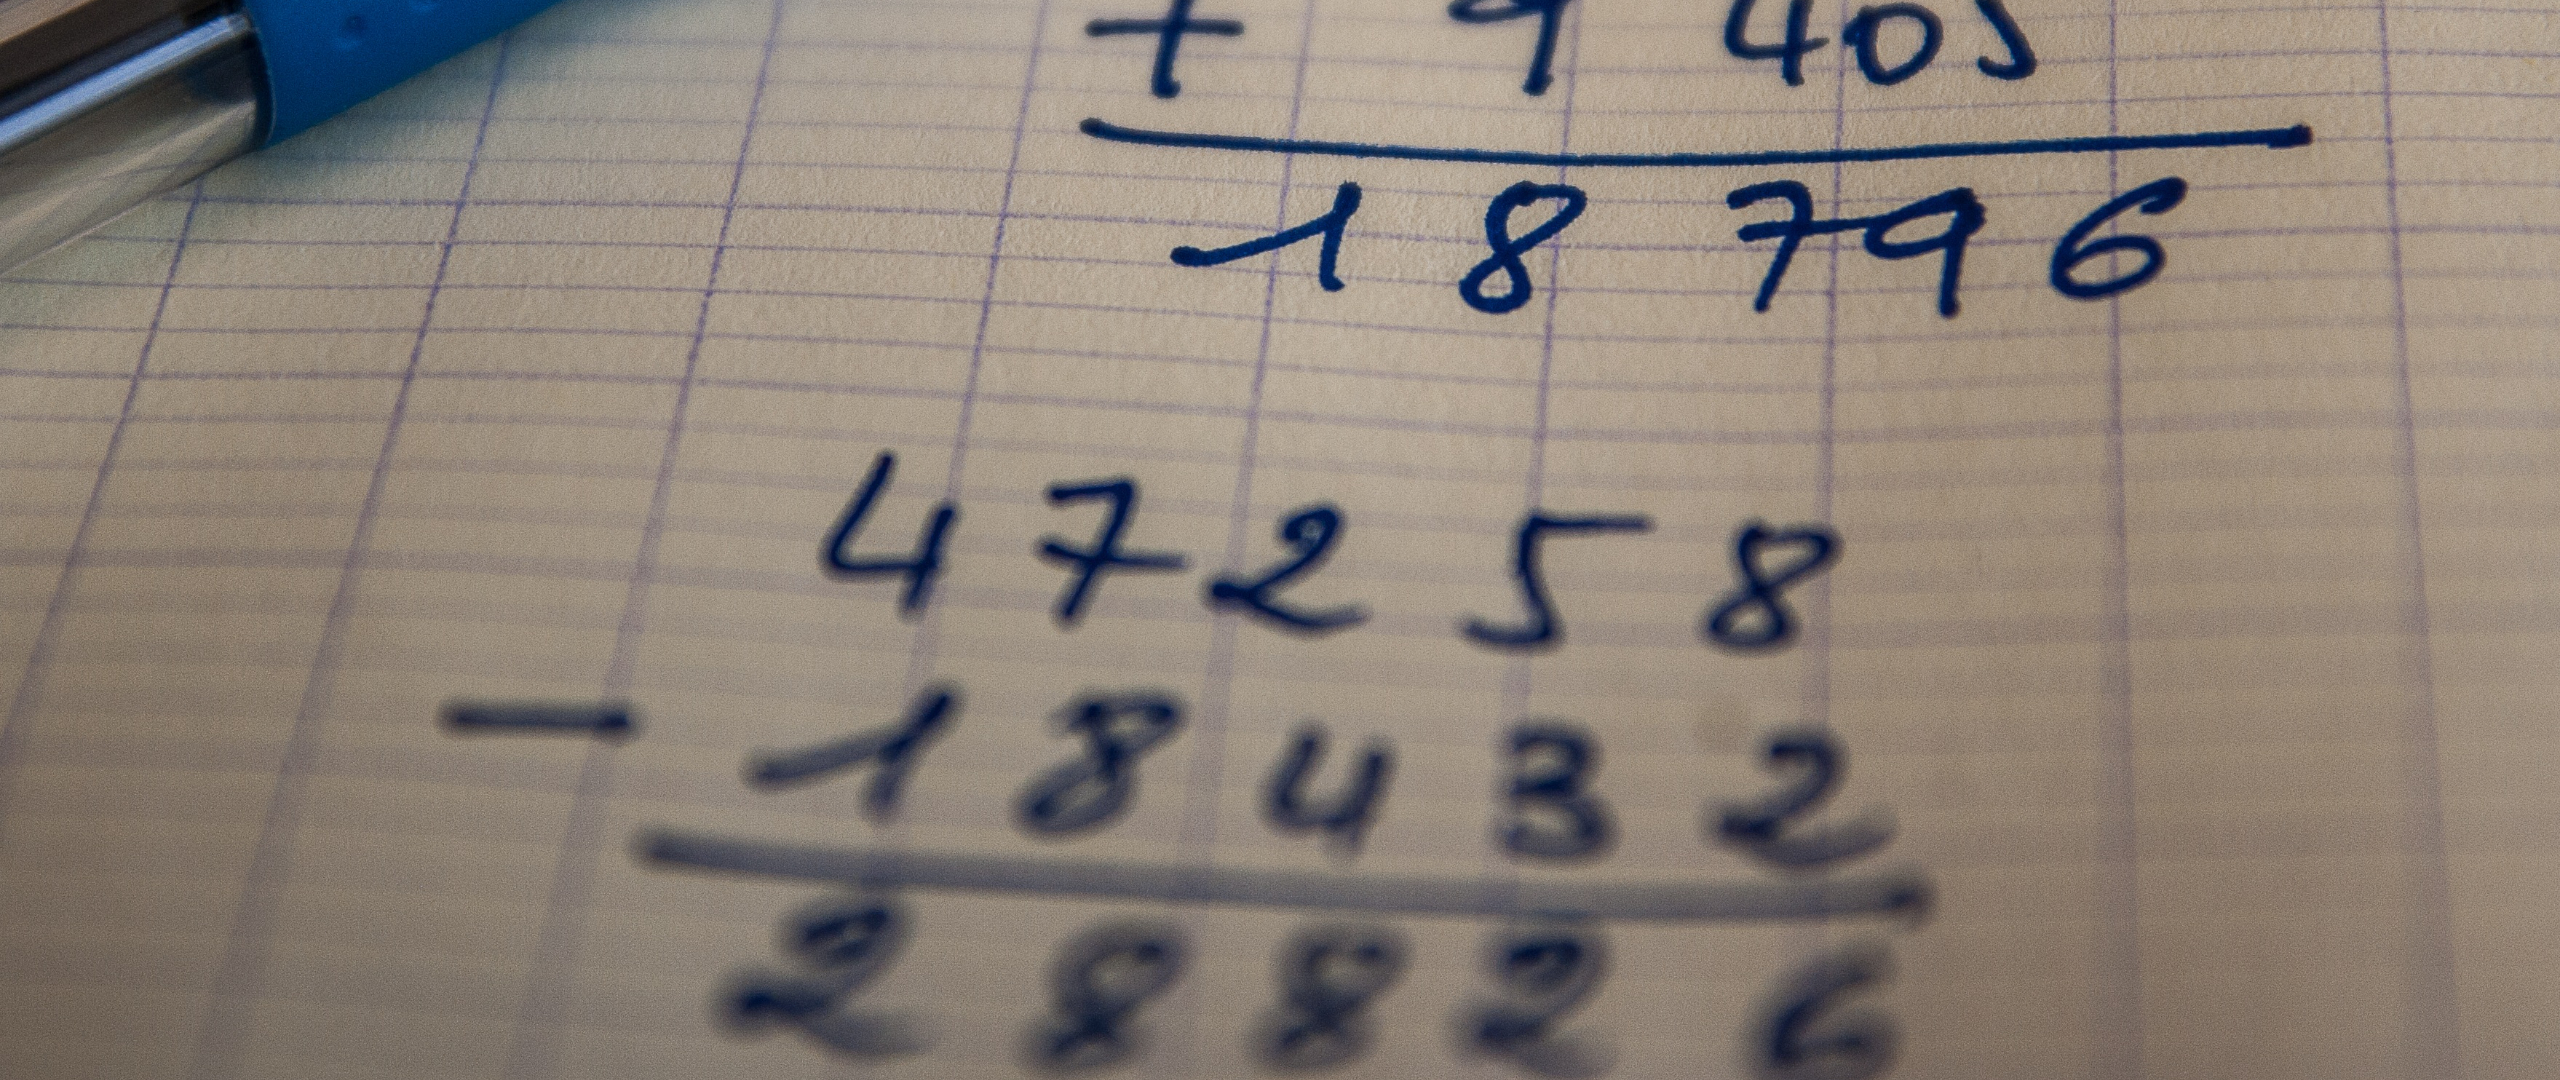 + 9 405
18 796
47258
- 18432
28826